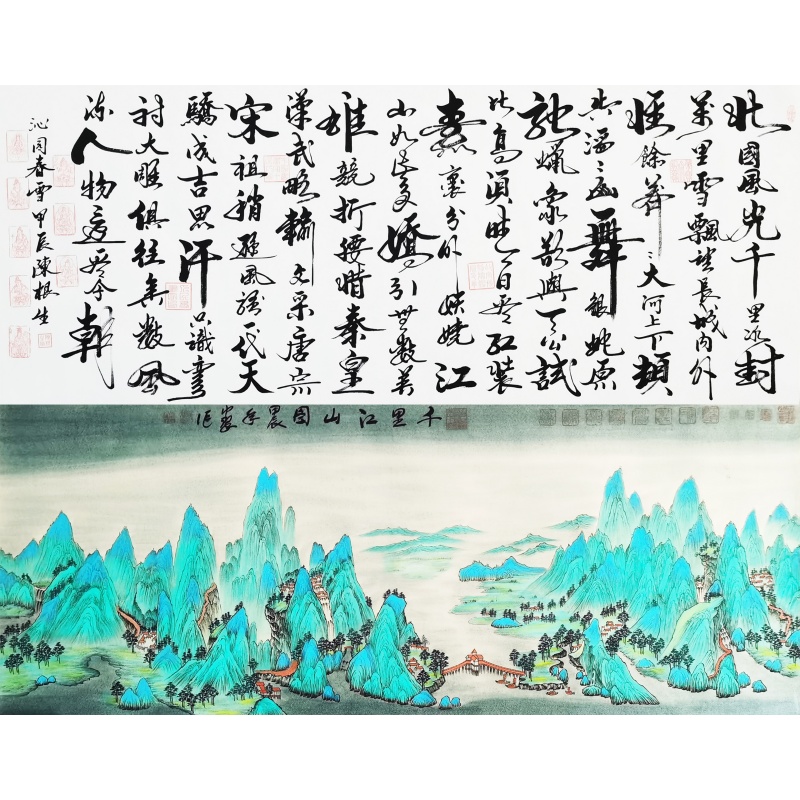 北國風光千里冰封
萬里雪飄望長城内外
惟餘莽〻大河上下頓
失滔〻山舞銀蛇原
馳蠟象欲與天公試
比高須晴日看红装
素裹分外妖娆江
山如此多嬌引無數英
雄競折腰惜秦皇
漢武略輸文采唐宗
宋祖稍遜風騷一代天
驕成吉思汗只識彎
射大雕俱往矣數風
流人物還看今朝
沁园春雪甲辰陳根生
千里江山图